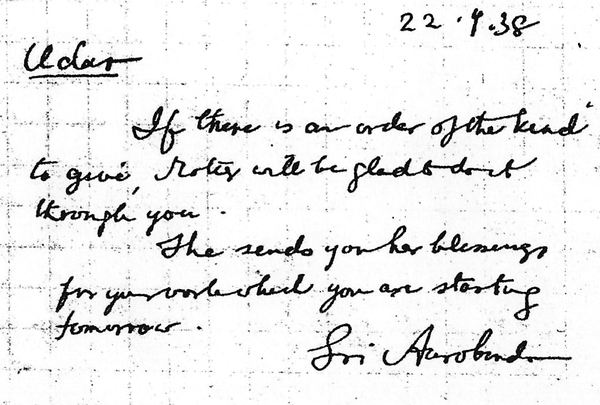 22.9.38
Udar
If there is an order of the kind
to give, Mother will be glad to do it
through you.
She sends you her blessings
for your work which you are starting
tomorrow.
Sri Aurobindo